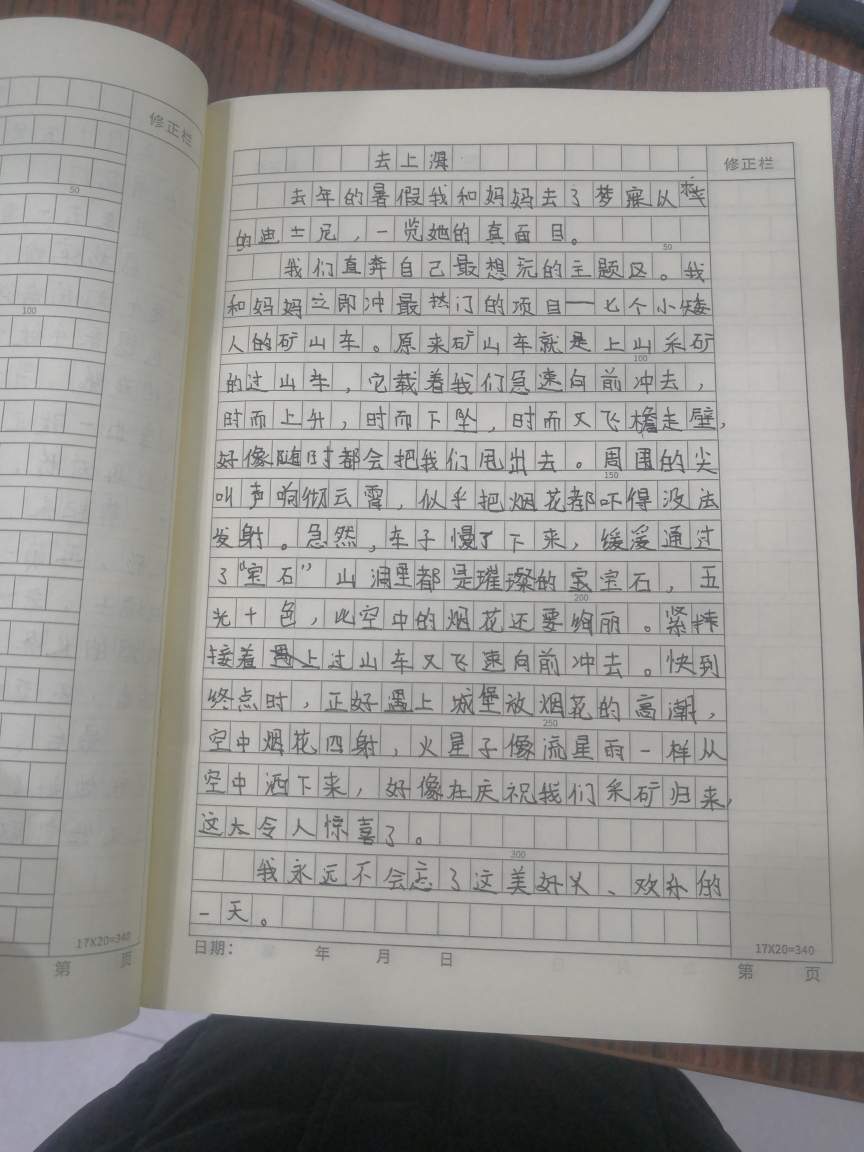 修正栏
50
100
17X20=340
第 页
去上海
修正栏
去年的暑假我和妈妈去了梦寐以求
的迪士尼，一览她的真面目。
50
我们直奔自己最想玩的主题区。我
和妈妈立即冲最热门的项目——七个小矮
人的矿山车。原来矿山车就是上山采矿
100
的过山车，它载着我们急速向前冲去，
时而上升，时而下坠，时而又飞檐走壁，
好像随时都会把我们甩出去。周围的尖
150
叫声响彻云霄，似乎把烟花都吓得没法
发射。忽然，车子慢了下来，缓缓通过
了“宝石”山洞里都是璀璨的宝石，五
200
光十色，比空中的烟花还要绚丽。紧接
接着过山车又飞速向前冲去。快到
终点时，正好遇上城堡放烟花的高潮，
250
空中烟花四射，火星子像流星雨一样从
空中洒下来，好像在庆祝我们采矿归来，
这太令人惊喜了。
300
我永远不会忘了这美好又、欢乐的
一天。
日期： 年 月 日
17X20=340
第 页